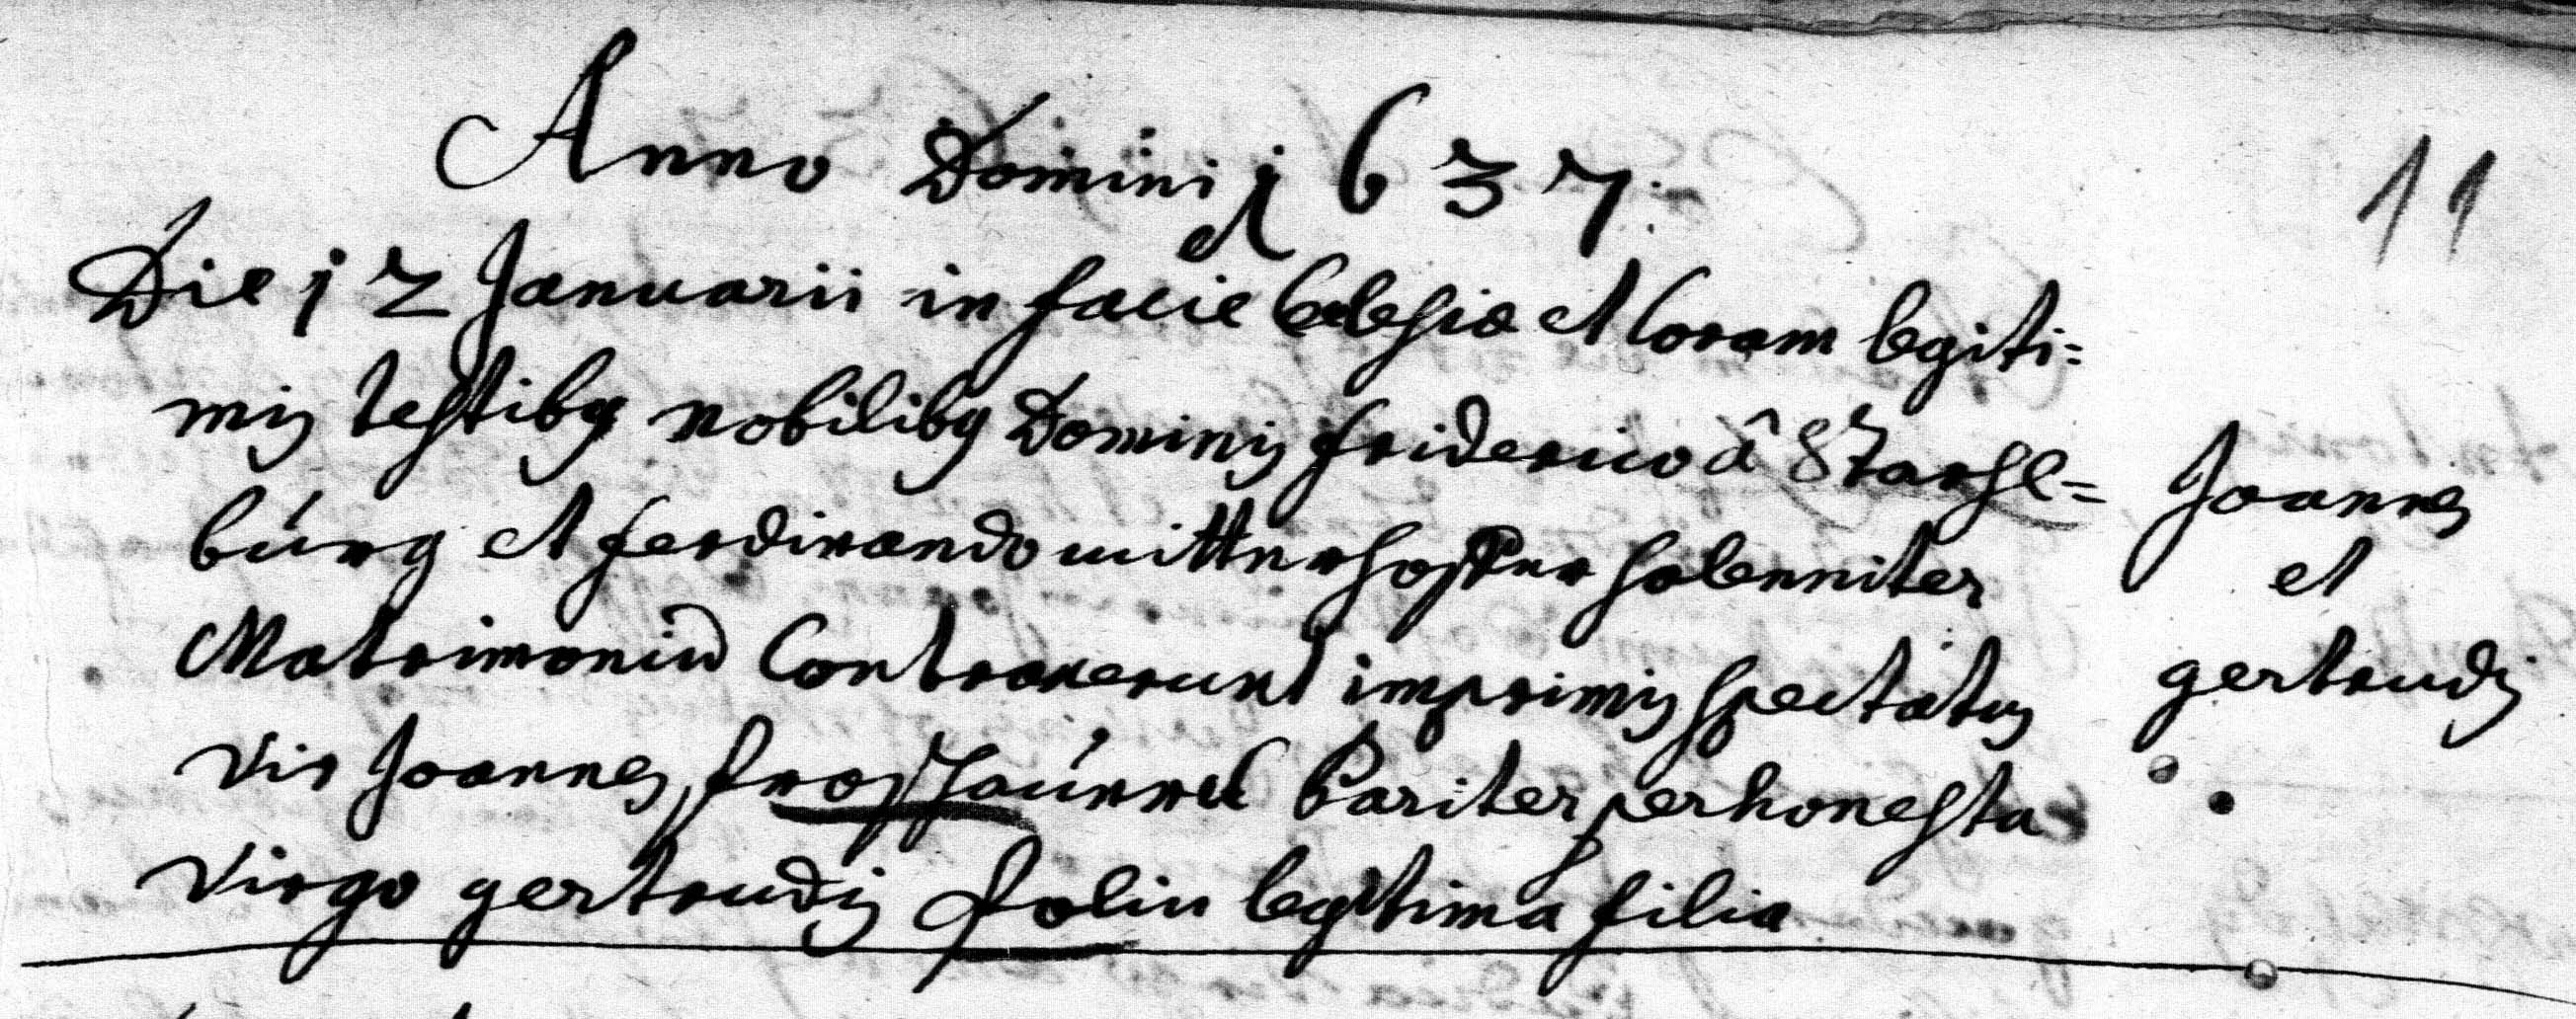 Anno Domini 1637.
11
Die 12 Januarii in facie Eclesiæ et Coram legiti=
mis testibus nobilibus Dominis friderico â Starhe=
búrg et ferdinando solenniter
Matrimoniũ Contraxerunt imprimis spectatus
vir Joannes Pariter perhonesta
virgo gertrudis legitima filia
Joannes
et
gertrudis